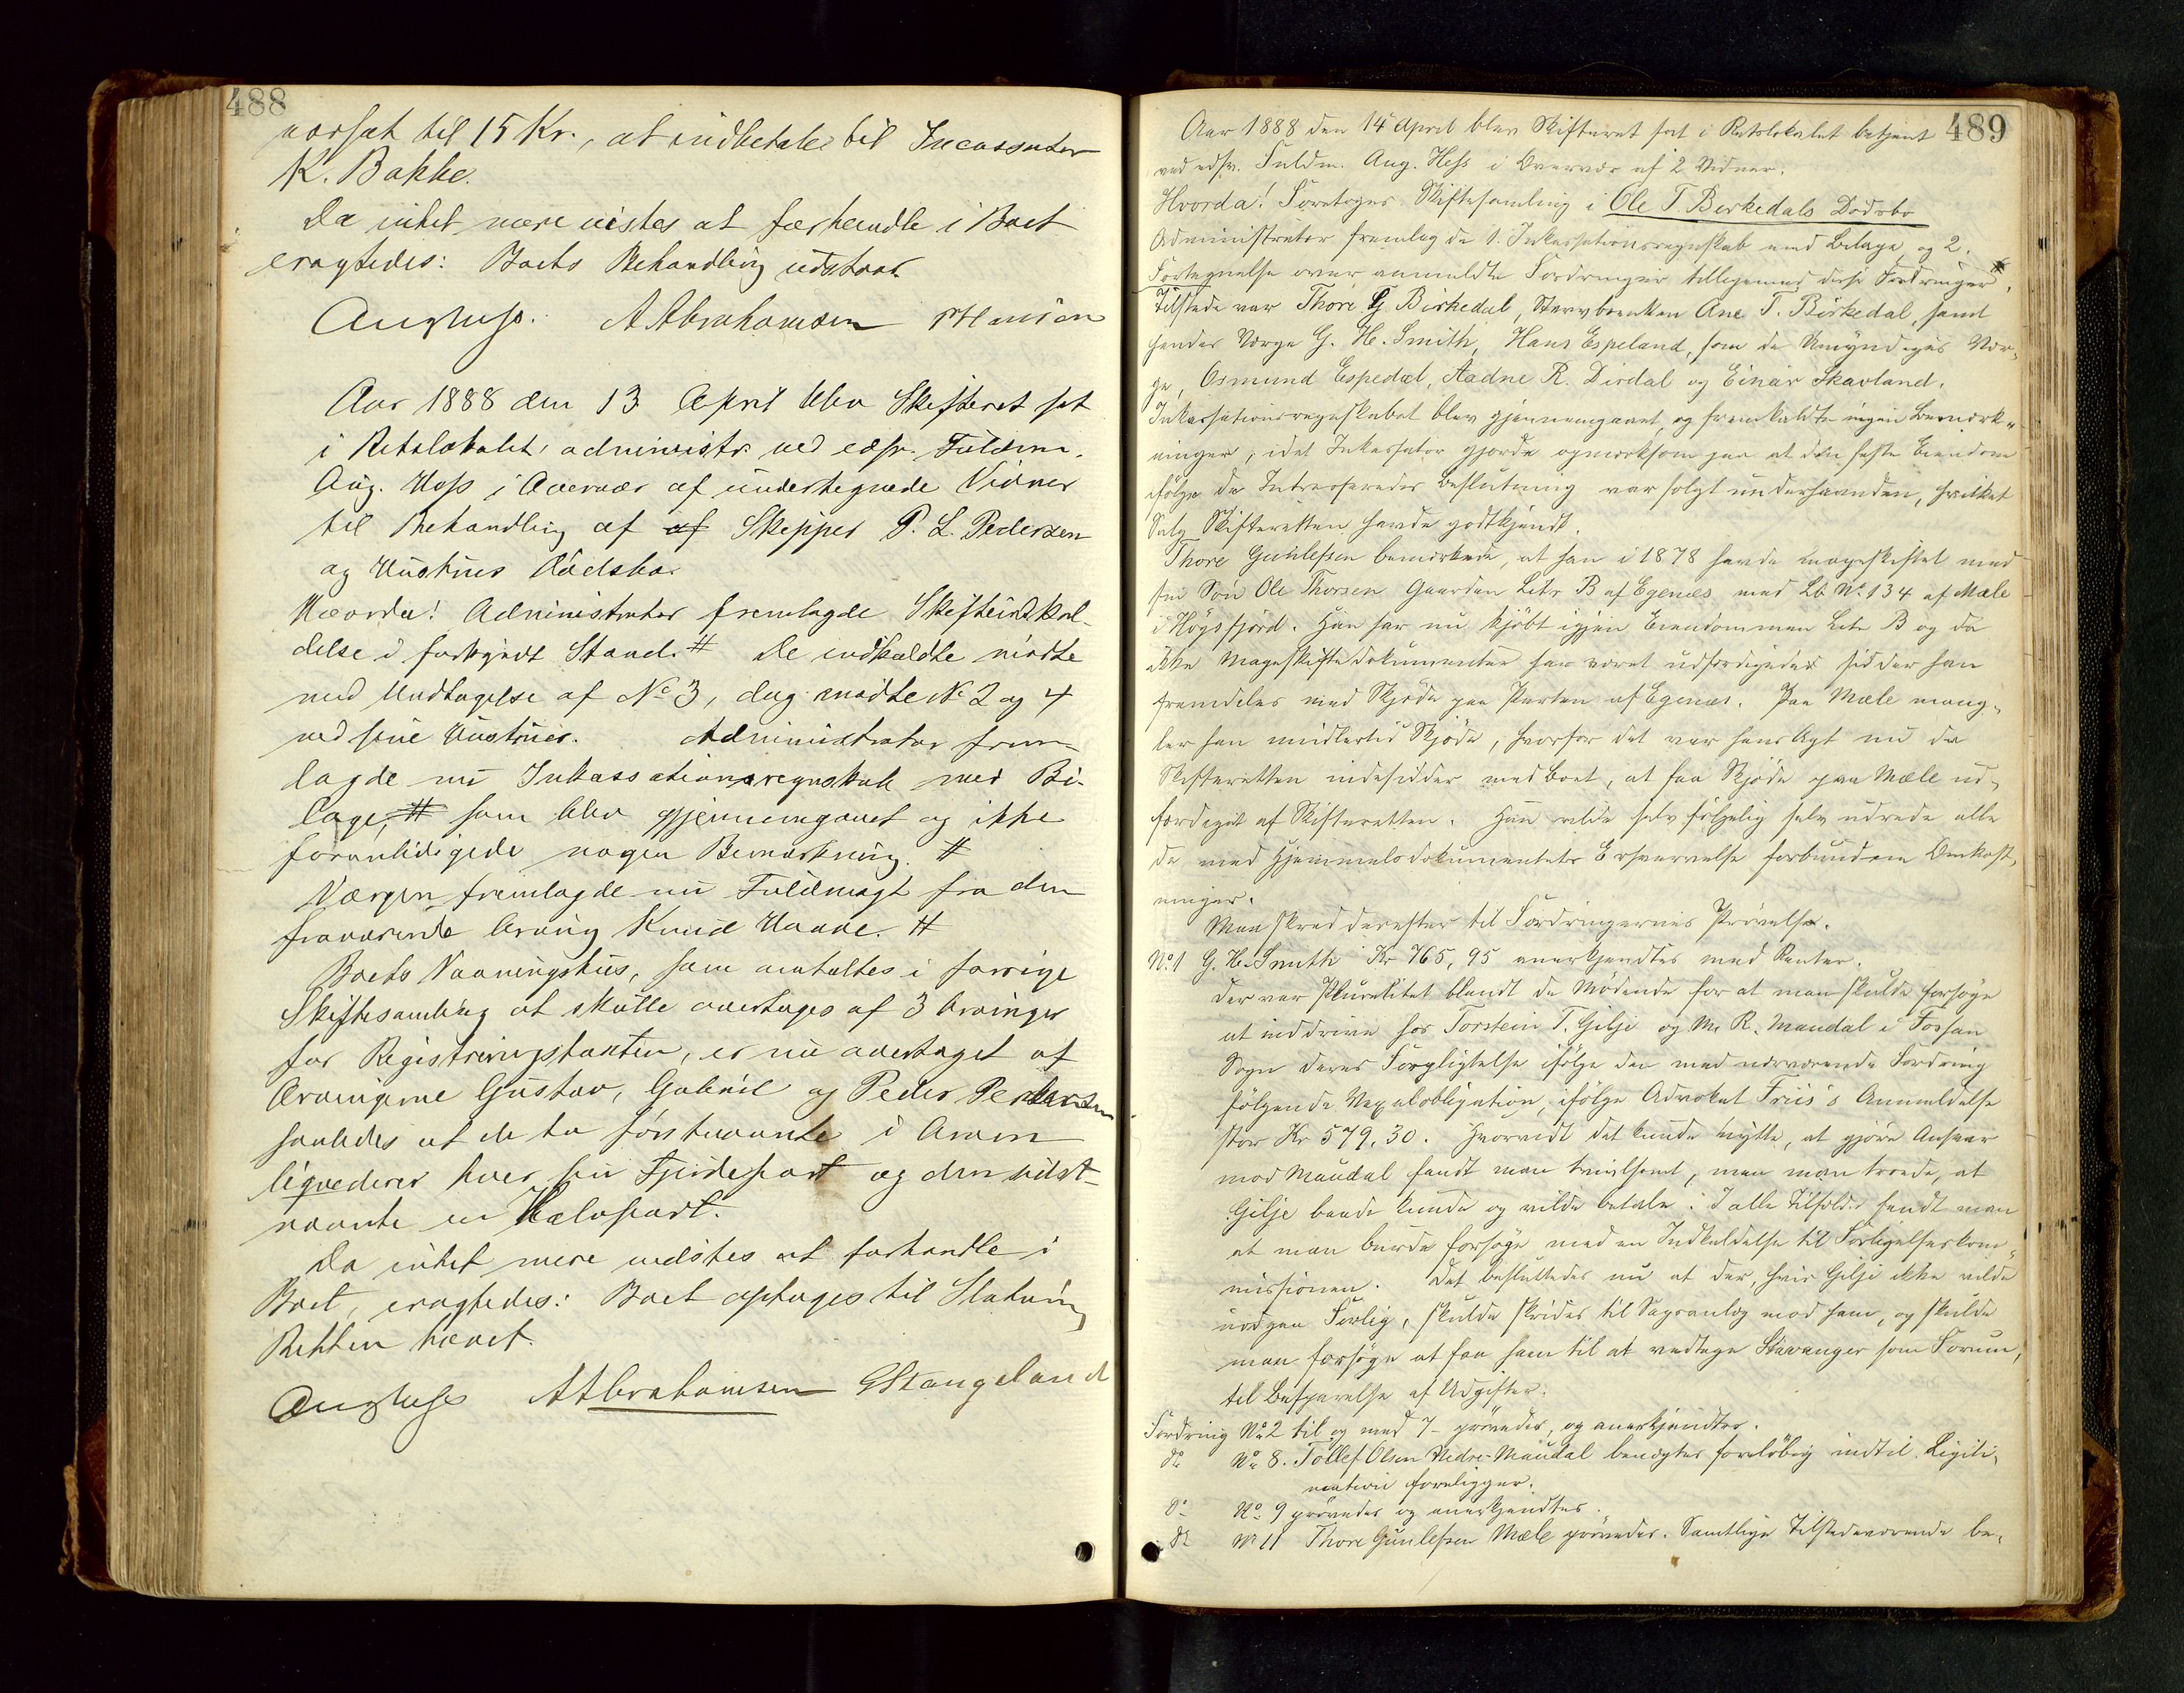 488
ansat til 15 Kr., at indbetale til Incassator
K. Bakke.
Da intet mere vistes at forhandle i Boet
eragtedes: Boets Behandling udstaar.
Aug Hess. A Abrahamsen Hansen
Aar 1888 den 13 April blev Skifteret sat
i Retslokalet, administr. ved edsv. Fuldm.
Aug. Hess i Overvær af undertegnede Vidner
til Behandling af af Skipper P. L. Pedersen
og Hustrues Dødsbo.
Hvorda! Administrator fremlagde Skifteindkal-
delse i forkyndt Stand. # De indkaldte mødte
med Undtagelse af No 3, dog mødte No 2 og 4
ved sine Hustruer. Administrator frem-
lagde nu Inkassationsregnskab med Bi-
lage, # som blev gjennemgaaet og ikke
foranledigede nogen Bemærkning. #
Værgen fremlagde nu Fuldmagt fra den
fraværende Arving Knud Haave. #
Boets Vaaningshus, som omtaltes i forrige
Skiftesamling at skulle overtages af 3 Arvinger
for Registreringstaxten, er nu overtaget af
Arvingerne Gustav, Gabriel og Peder Pedersen
saaledes at de to førstnævnte i Arven
liqvederer hver sin Fjerdepart og den sidst-
nævnte en Halvpart.
Da intet mere vidstes at forhandle i
Boet, eragtedes: Boet optages til Slutning
Retten hævet.
Aug Hess A Abrahamsen G Stangeland
489
Aar 1888 den 14 April blev Skifteret sat i Retslokalet betjent
ved edsv. Fuldm. Aug. Hess i Overvær af 2 Vidner.
Hvorda! Foretoges Skiftesamling i Ole T. Birkedals Dødsbo
Administrator fremlagde 1. Inkassationsregnskab med Bilage og 2.
Fortegnelse over anmeldte Fordringer tilligemed disse Fordringer. #
Tilstede var Thore G Birkedal, Stervboenken Ane T. Birkedal, samt
hendes Værge G. H. Smith, Hans Espeland, som de Umyndiges Vær-
ge, Osmund Espedal, Aadne R. Dirdal og Einar Skavland.
Inkassationsregnskabet blev gjennemgaaet, og fremkaldte ingen Bemærk-
ninger, idet Inkassator gjorde opmærksom paa at den faste Eiendom
ifølge de Interesseredes Beslutning var solgt underhaanden, hvilket
Salg Skifteretten havde godtkjendt.
Thore Gunlefsen bemærkede, at han i 1878 havde mageskiftet med
sin Søn Ole Thorsen Gaarden Litr B af Egenæs med Lb No 134 af Mæle
i Høgsfjord. Han har nu kjøbt igjen Eiendommen Litr B og da
ikke Mageskiftedokumenter har været udfærdigede sidder han
fremdeles med Skjøde paa Parten af Egenæs. Paa Mæle mang-
ler han midlertid Skjøde, hvorfor det var hans Agt nu da
Skifteretten indesidder med Boet, at faa Skjøde paa Mæle ud-
færdiget af Skifteretten. Han vilde selv følgelig selv udrede alle
de med Hjemmelsdokumentets Erhvervelse forbundne Omkost-
ninger.
Man skred derefter til Fordringernes Prøvelse.
No 1 G. H. Smith Kr 765,95 anerkjendtes med Renter.
Der var Pluralitet blandt de Mødende for at man skulde forsøge
at inddrive hos Torstein T. Gilje og M. R. Maudal i Fossan
Sogn deres Forpligtelse ifølge den med nærværende Fordring
følgende Vexelobligation, ifølge Advokat Friis's Anmeldelse
stor Kr 579,30. Hvorvidt det kunde nytte, at gjøre Ansvar
mod Maudal fandt man tvivlsomt, men man troede, at
Gilje baade kunde og vilde betale. I alle Tilfælde fandt man
at man burde forsøge med en Indkaldelse til Forligelseskom-
missionen. Det besluttedes nu at der, hvis Gilje ikke vilde
indgaa Forlig, skulde skrides til Søgsanlæg mod ham, og skulde
man forsøge at faa ham til at vedtage Stavanger som Forum,
til Besparelse af Udgifter.
Fordring No 2 til og med 7 prøvedes, og anerkjendtes.
do No 8. Tollef Olsen Nedre-Maudal benægtes foreløbig indtil Legiti-
mation foreligger.
do No 9 prøvedes og anerkjendtes.
do No 11 Thore Gunlefsen Mæle prøvedes. Samtlige Tilstedeværende be-